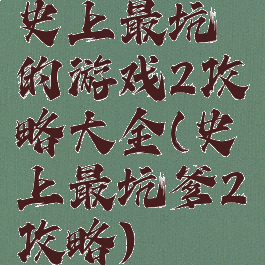 史上最坑
的游戏2攻
略大全(史
上最坑爹2
攻略)